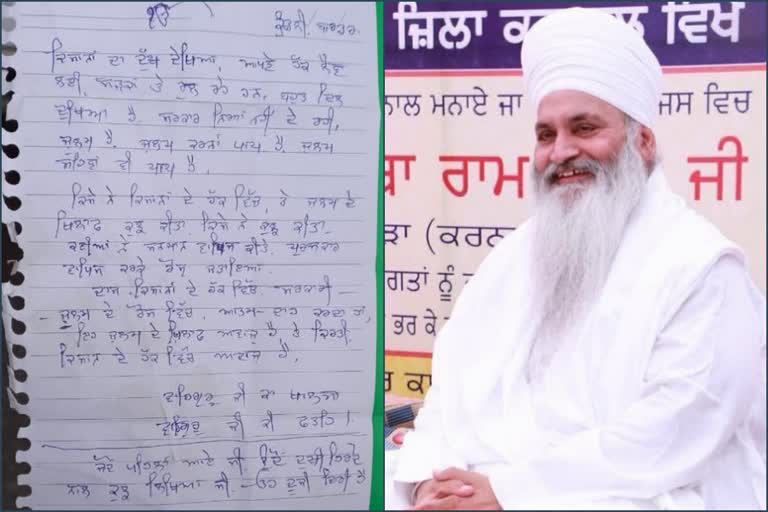 ੴ
ਕੁੰਡਲੀ ਬਾਰਡਰ
ਕਿਸਾਨਾਂ ਦਾ ਦੁੱਖ ਦੇਖਿਆ, ਆਪਣੇ ਹੱਕ ਲੈਣ
ਲਈ, ਸੜਕਾਂ ਤੇ ਰੁਲ ਰਹੇ ਹਨ. ਬਹੁਤ ਦਿਲ
ਦੁਖਿਆ ਹੈ. ਸਰਕਾਰ ਨਿਆਂ ਨਹੀਂ ਦੇ ਰਹੀ,
ਜ਼ੁਲਮ ਹੈ. ਜ਼ੁਲਮ ਕਰਨਾ ਪਾਪ ਹੈ. ਜ਼ੁਲਮ
ਸਹਿਣਾ ਵੀ ਪਾਪ ਹੈ.
ਕਿਸੇ ਨੇ ਕਿਸਾਨਾਂ ਦੇ ਹੱਕ ਵਿੱਚ, ਤੇ ਜ਼ੁਲਮ ਦੇ
ਖਿਲਾਫ ਕੁਝ ਕੀਤਾ. ਕਿਸੇ ਨੇ ਕੁਝ ਕੀਤਾ.
ਕਈਆਂ ਨੇ ਸਨਮਾਨ ਵਾਪਿਸ ਕੀਤੇ. ਪੁਰਸਕਾਰ
ਵਾਪਿਸ ਕਰਕੇ ਰੋਸ ਜਤਾਇਆ.
ਦਾਸ ਕਿਸਾਨਾਂ ਦੇ ਹੱਕ ਵਿੱਚ. ਸਰਕਾਰੀ
ਜ਼ੁਲਮ ਦੇ ਰੋਸ ਵਿੱਚ. ਆਤਮ-ਦਾਹ ਕਰਦਾ ਹਾਂ,
ਇਹ ਜ਼ੁਲਮ ਦੇ ਖਿਲਾਫ ਆਵਾਜ਼ ਹੈ. ਤੇ ਕਿਰਤੀ
ਕਿਸਾਨ ਦੇ ਹੱਕ ਵਿੱਚ ਆਵਾਜ਼ ਹੈ,
ਵਾਹਿਗੁਰੂ ਜੀ ਕਾ ਖਾਲਸਾ
ਵਾਹਿਗੁਰੂ ਜੀ ਕੀ ਫਤਹਿ।
ਜਦੋਂ ਪਹਿਲਾਂ ਆਏ ਸੀ,
ਨਾਲ ਕੁਝ ਲਿਖਿਆ ਸੀ. ਹੈ
ਜ਼ਿਲਾ ਵਿਖੇ
ਨਾਲ ਮਨਾਏ ਜਾ ਜਿਸ ਵਿਚ
ਬਾ ਰਾਮ ਜੀ
ੜਾ (ਕਰਨ
ਗਤਾਂ ਨੂੰ
ਭਰ ਕੇ
ਰ ਕਾ